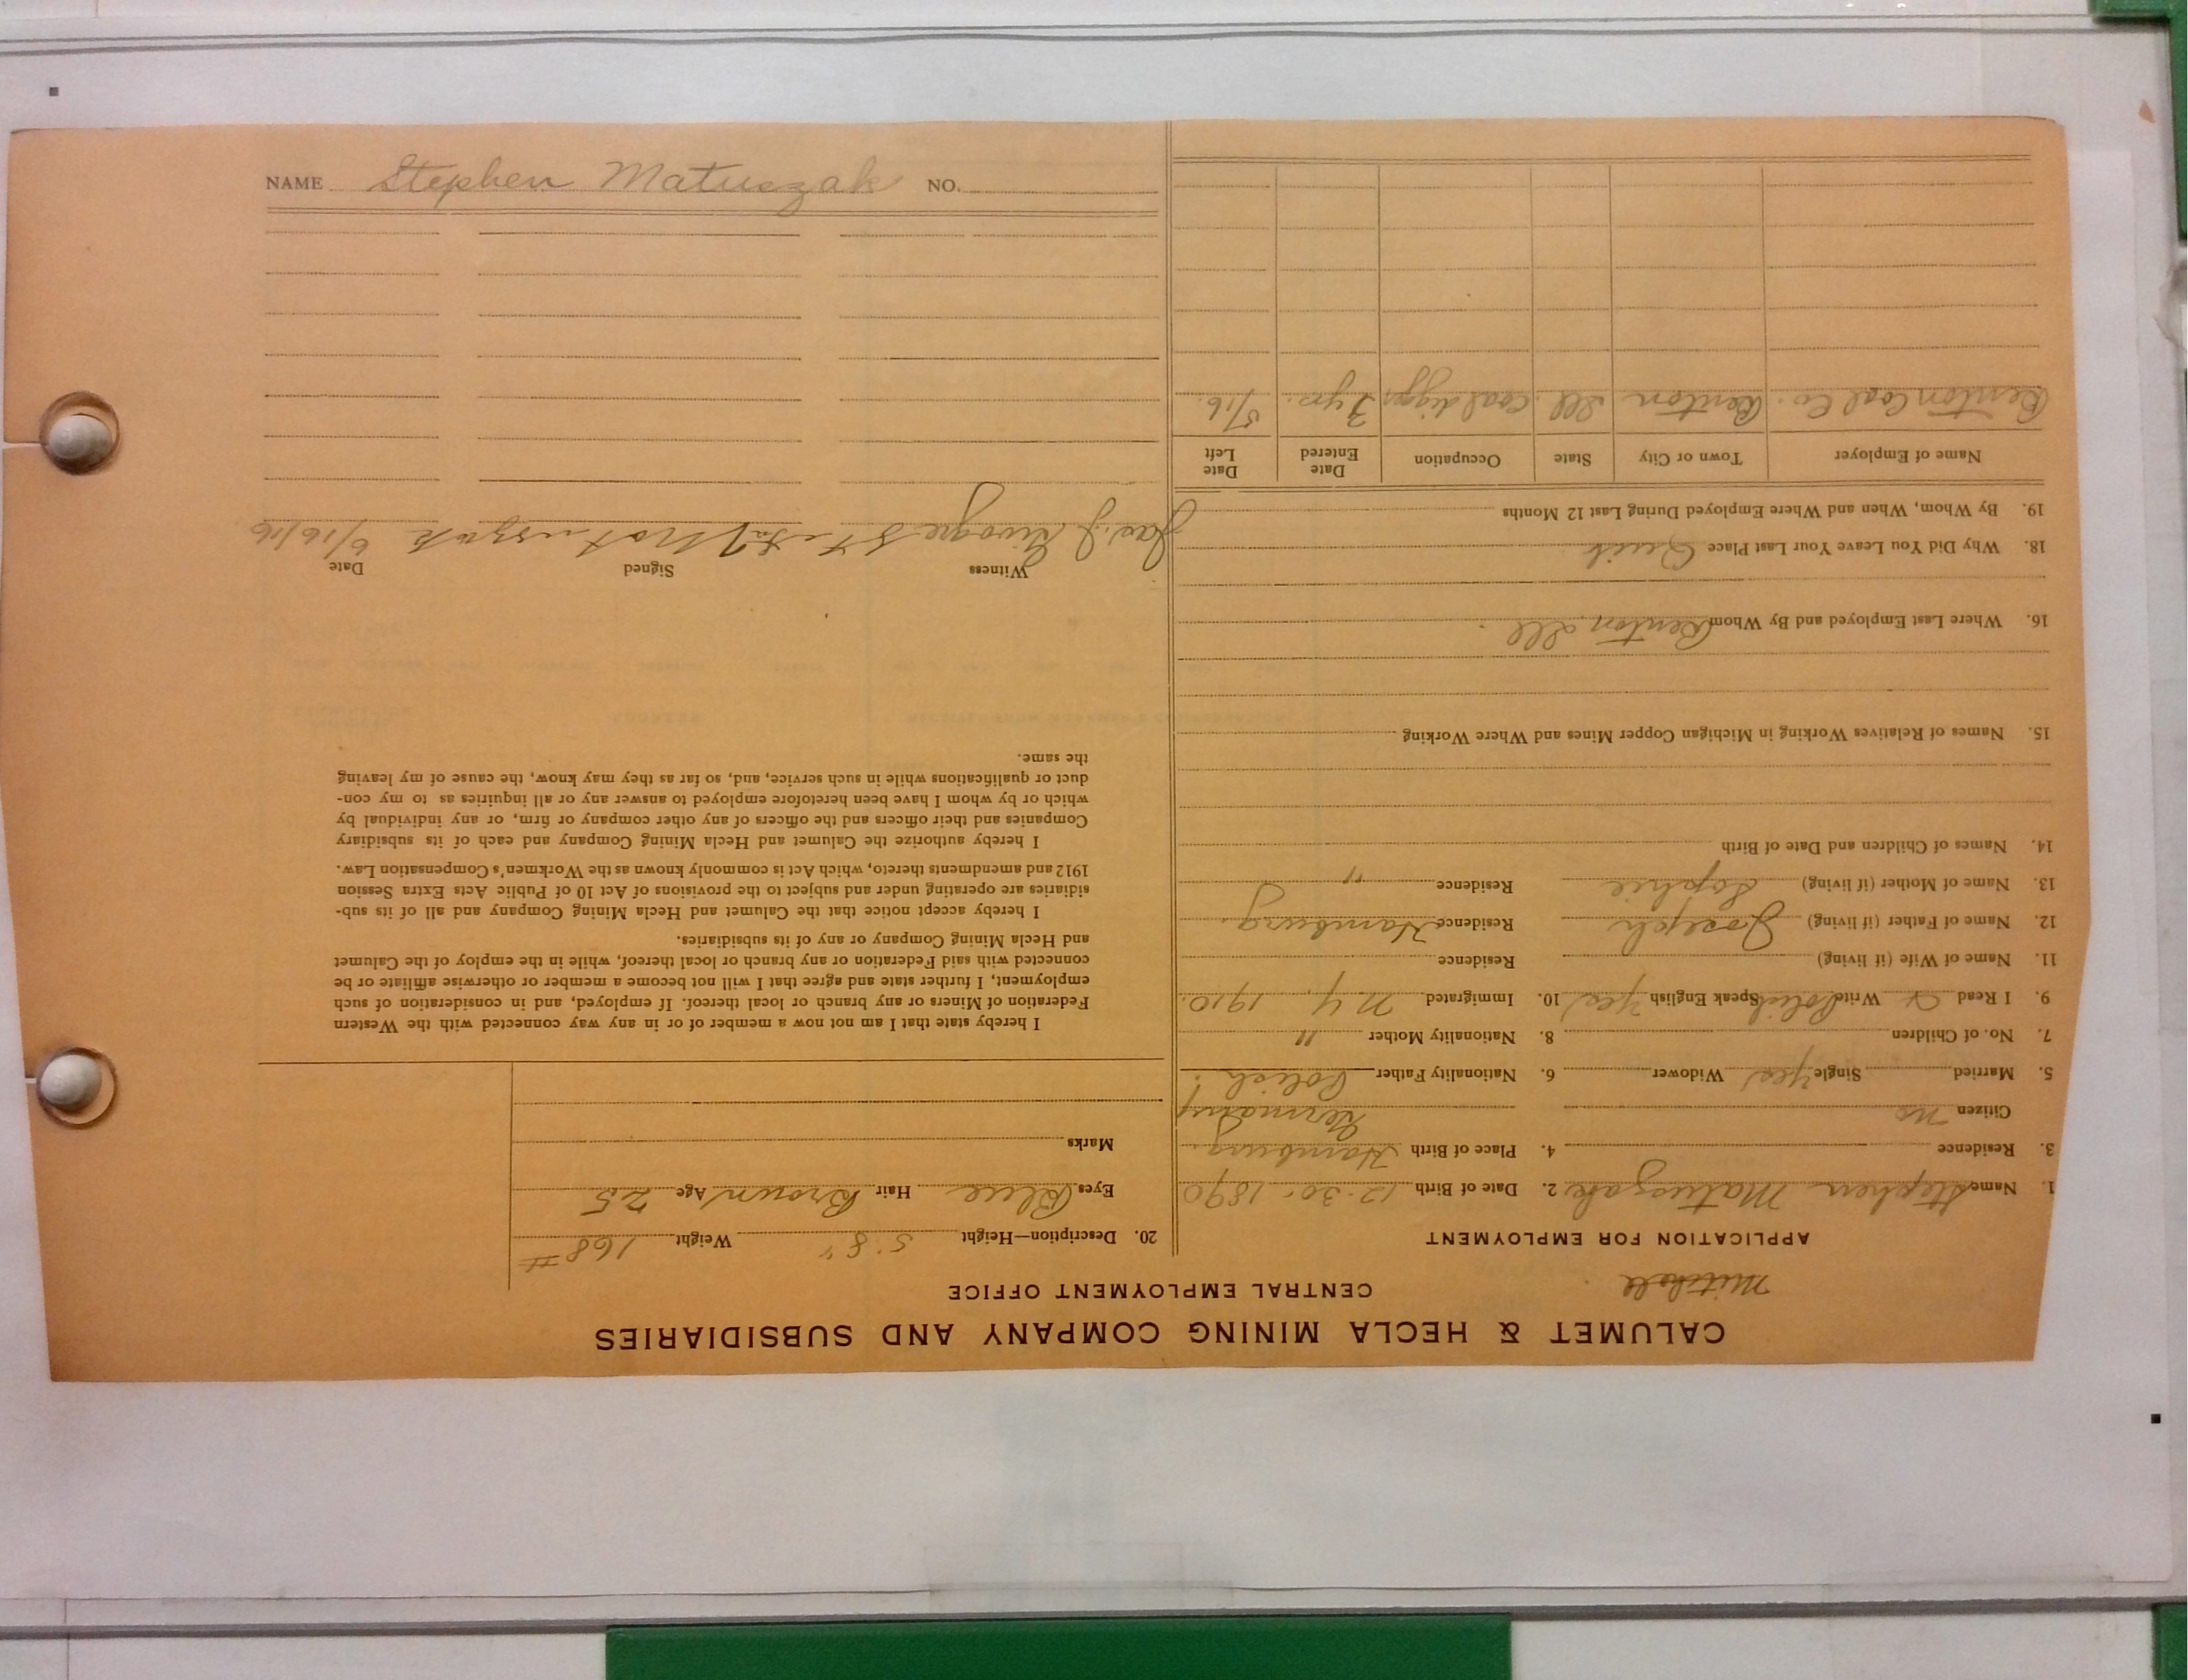 NAME Stephen Matuszak NO.
CALUMET & HECLA MINING COMPANY AND SUBSIDIARIES
CENTRAL EMPLOYMENT OFFICE
Mitchell
APPLICATION FOR EMPLOYMENT
1. Name Stephen Matuszak 2. Date of Birth 12-30-1890
3. Residence 4. Place of Birth Hamburg.
Citizen no Germany
5. Married Single Yes Widower 6. Nationality Father Polish.
7. No. of Children 8. Nationality Mother "
9. I Read & Write Polish Speak English Yes 10. Immigrated N.Y. 1910.
11. Name of Wife (if living) Residence
12. Name of Father (if living) Joseph Residence Hamburg.
13. Name of Mother (if living) Sophie Residence "
14. Names of Children and Date of Birth
15. Names of Relatives Working in Michigan Copper Mines and Where Working
16. Where Last Employed and By Whom Benton, Ill.
18. Why Did You Leave Your Last Place Quit
19. By Whom, When and Where Employed During Last 12 Months
Name of Employer Town or City State Occupation Date Entered Date Left
Benton Coal Co. Benton Ill. Coal digger 3 yrs. 5/16.
20. Description—Height 5'8" Weight 168#
Eyes Blue Hair Brown Age 25
Marks
I hereby state that I am not now a member of or in any way connected with the Western
Federation of Miners or any branch or local thereof. If employed, and in consideration of such
employment, I further state and agree that I will not become a member or otherwise affiliate or be
connected with said Federation or any branch or local thereof, while in the employ of the Calumet
and Hecla Mining Company or any of its subsidiaries.
I hereby accept notice that the Calumet and Hecla Mining Company and all of its sub-
sidiaries are operating under and subject to the provisions of Act 10 of Public Acts Extra Session
1912 and amendments thereto, which Act is commonly known as the Workmen's Compensation Law.
I hereby authorize the Calumet and Hecla Mining Company and each of its subsidiary
Companies and their officers and the officers of any other company or firm, or any individual by
which or by whom I have been heretofore employed to answer any or all inquiries as to my con-
duct or qualifications while in such service, and, so far as they may know, the cause of my leaving
the same.
Witness Signed Date
Jas. J. 6/16/16